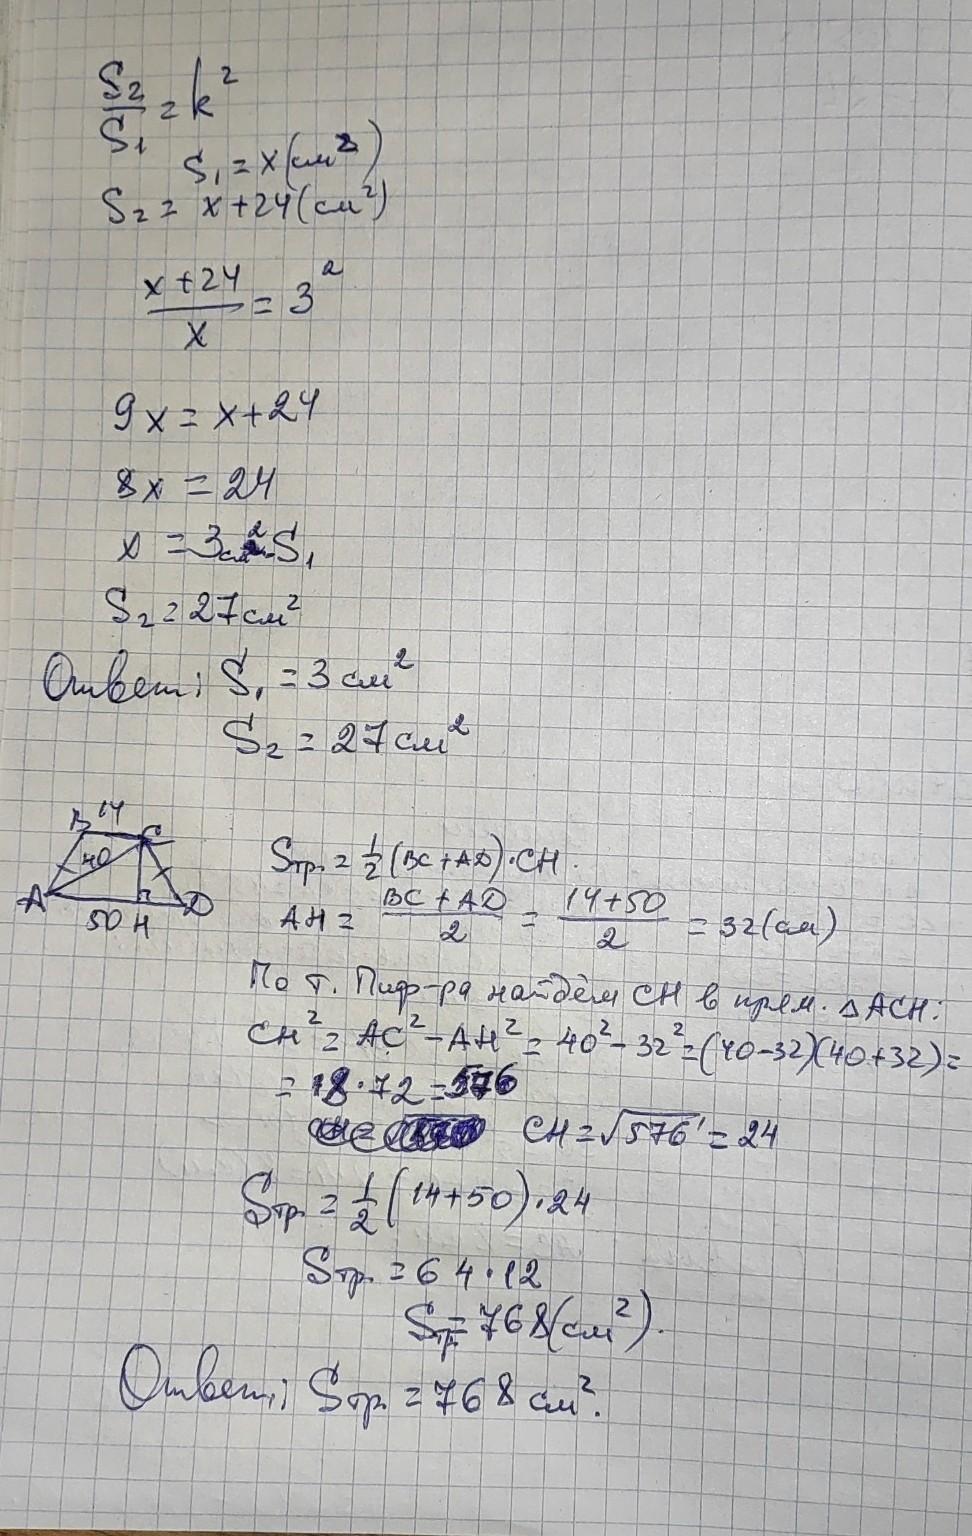 S₂/S₁ = k²
S₁ = x (см²)
S₂ = x + 24 (см²)
(x + 24)/x = 3²
9x = x + 24
8x = 24
x = 3 см² - S₁
S₂ = 27 см²
Ответ: S₁ = 3 см²
S₂ = 27 см²
B 14 C
40
A 50 H D
Sтр. = 1/2 (BC + AD) · CH.
AH = (BC + AD)/2 = (14 + 50)/2 = 32 (см)
По т. Пиф-ра найдём CH в прям. △ACH:
CH² = AC² - AH² = 40² - 32² = (40 - 32)(40 + 32) =
= 8 · 72 = 576
CH = √576 = 24
Sтр. = 1/2 (14 + 50) · 24
Sтр. = 64 · 12
Sтр. = 768 (см²).
Ответ: Sтр. = 768 см².